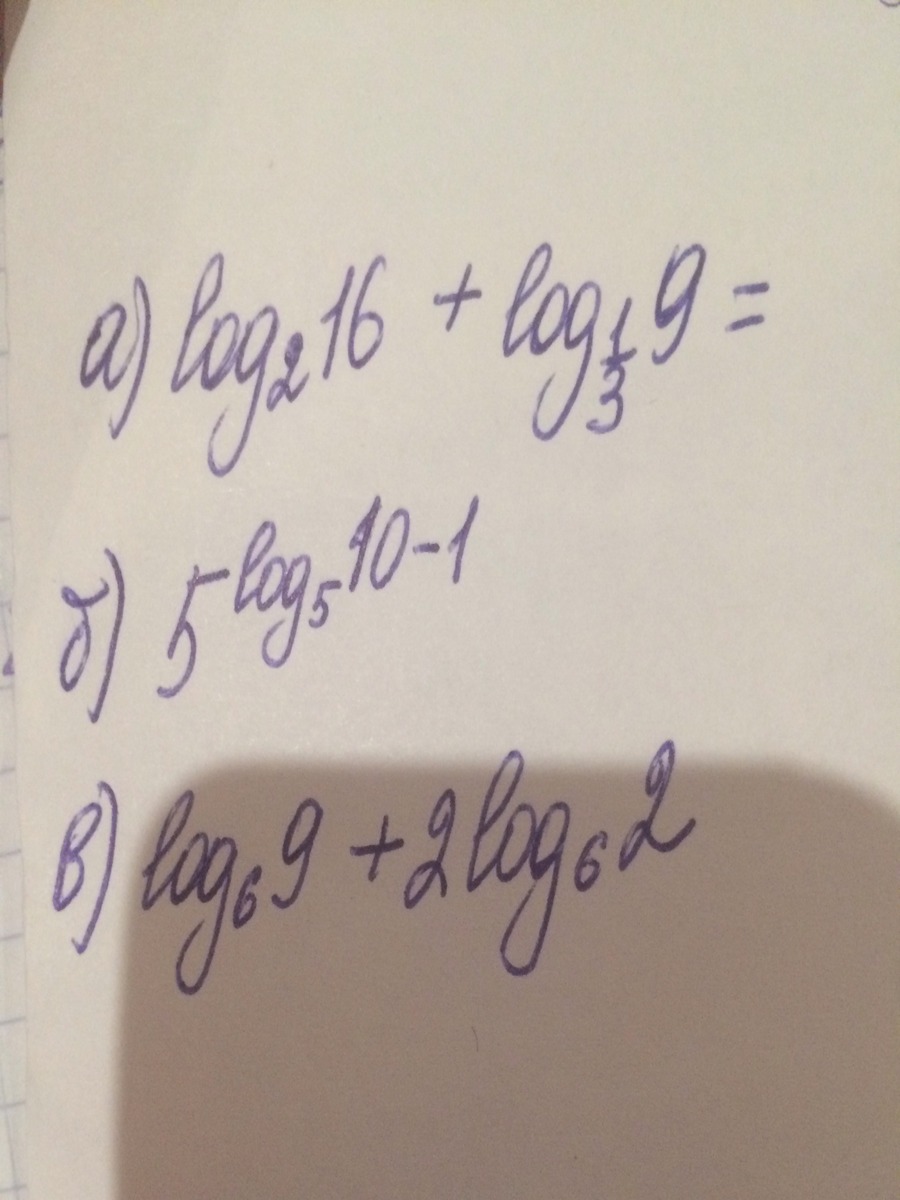 а) log₂16 + log_{1/3}9 =
б) 5^{log₅10-1}
в) log₆9 + 2log₆2